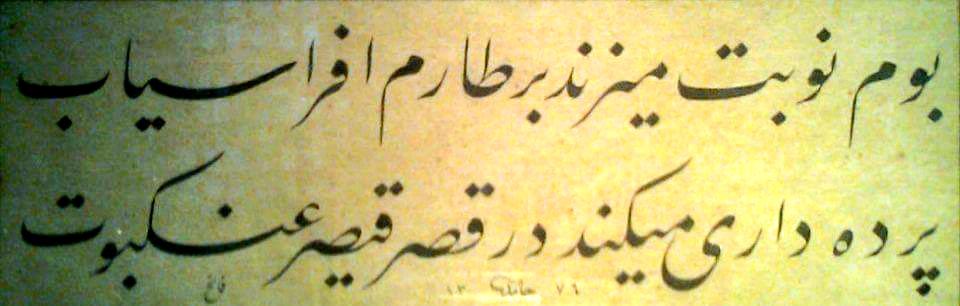 بوم نوبت میزند بر طارم افراسیاب
پرده داری میکند در قصر قیصر عنکبوت